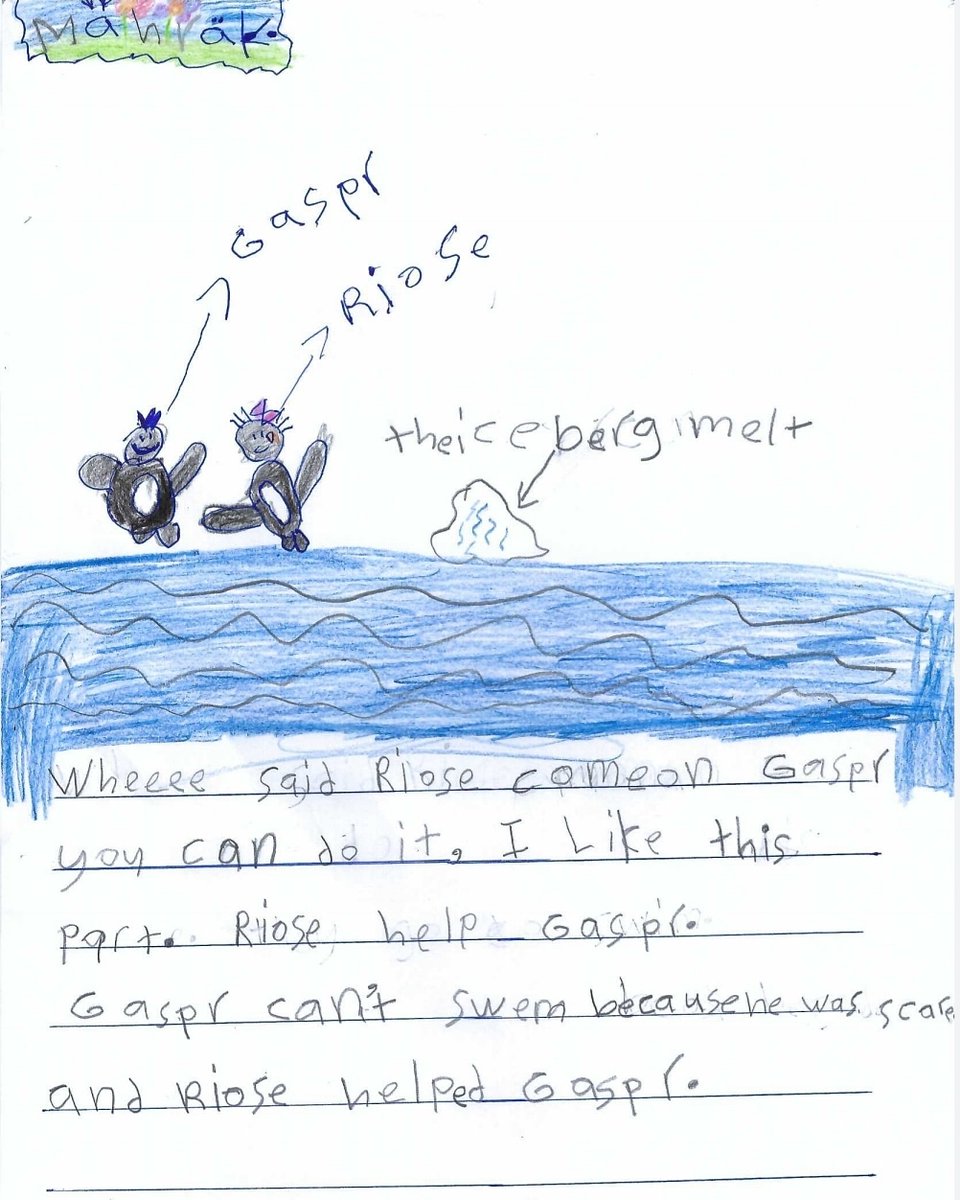 Mähräk.
Gaspr
Riose
theice berg melt
Wheeee said Riose comeon Gaspr
you can do it, I Like this
part. Riose help Gaspr.
Gaspr can't swem because he was scare
and Riose helped Gaspr.